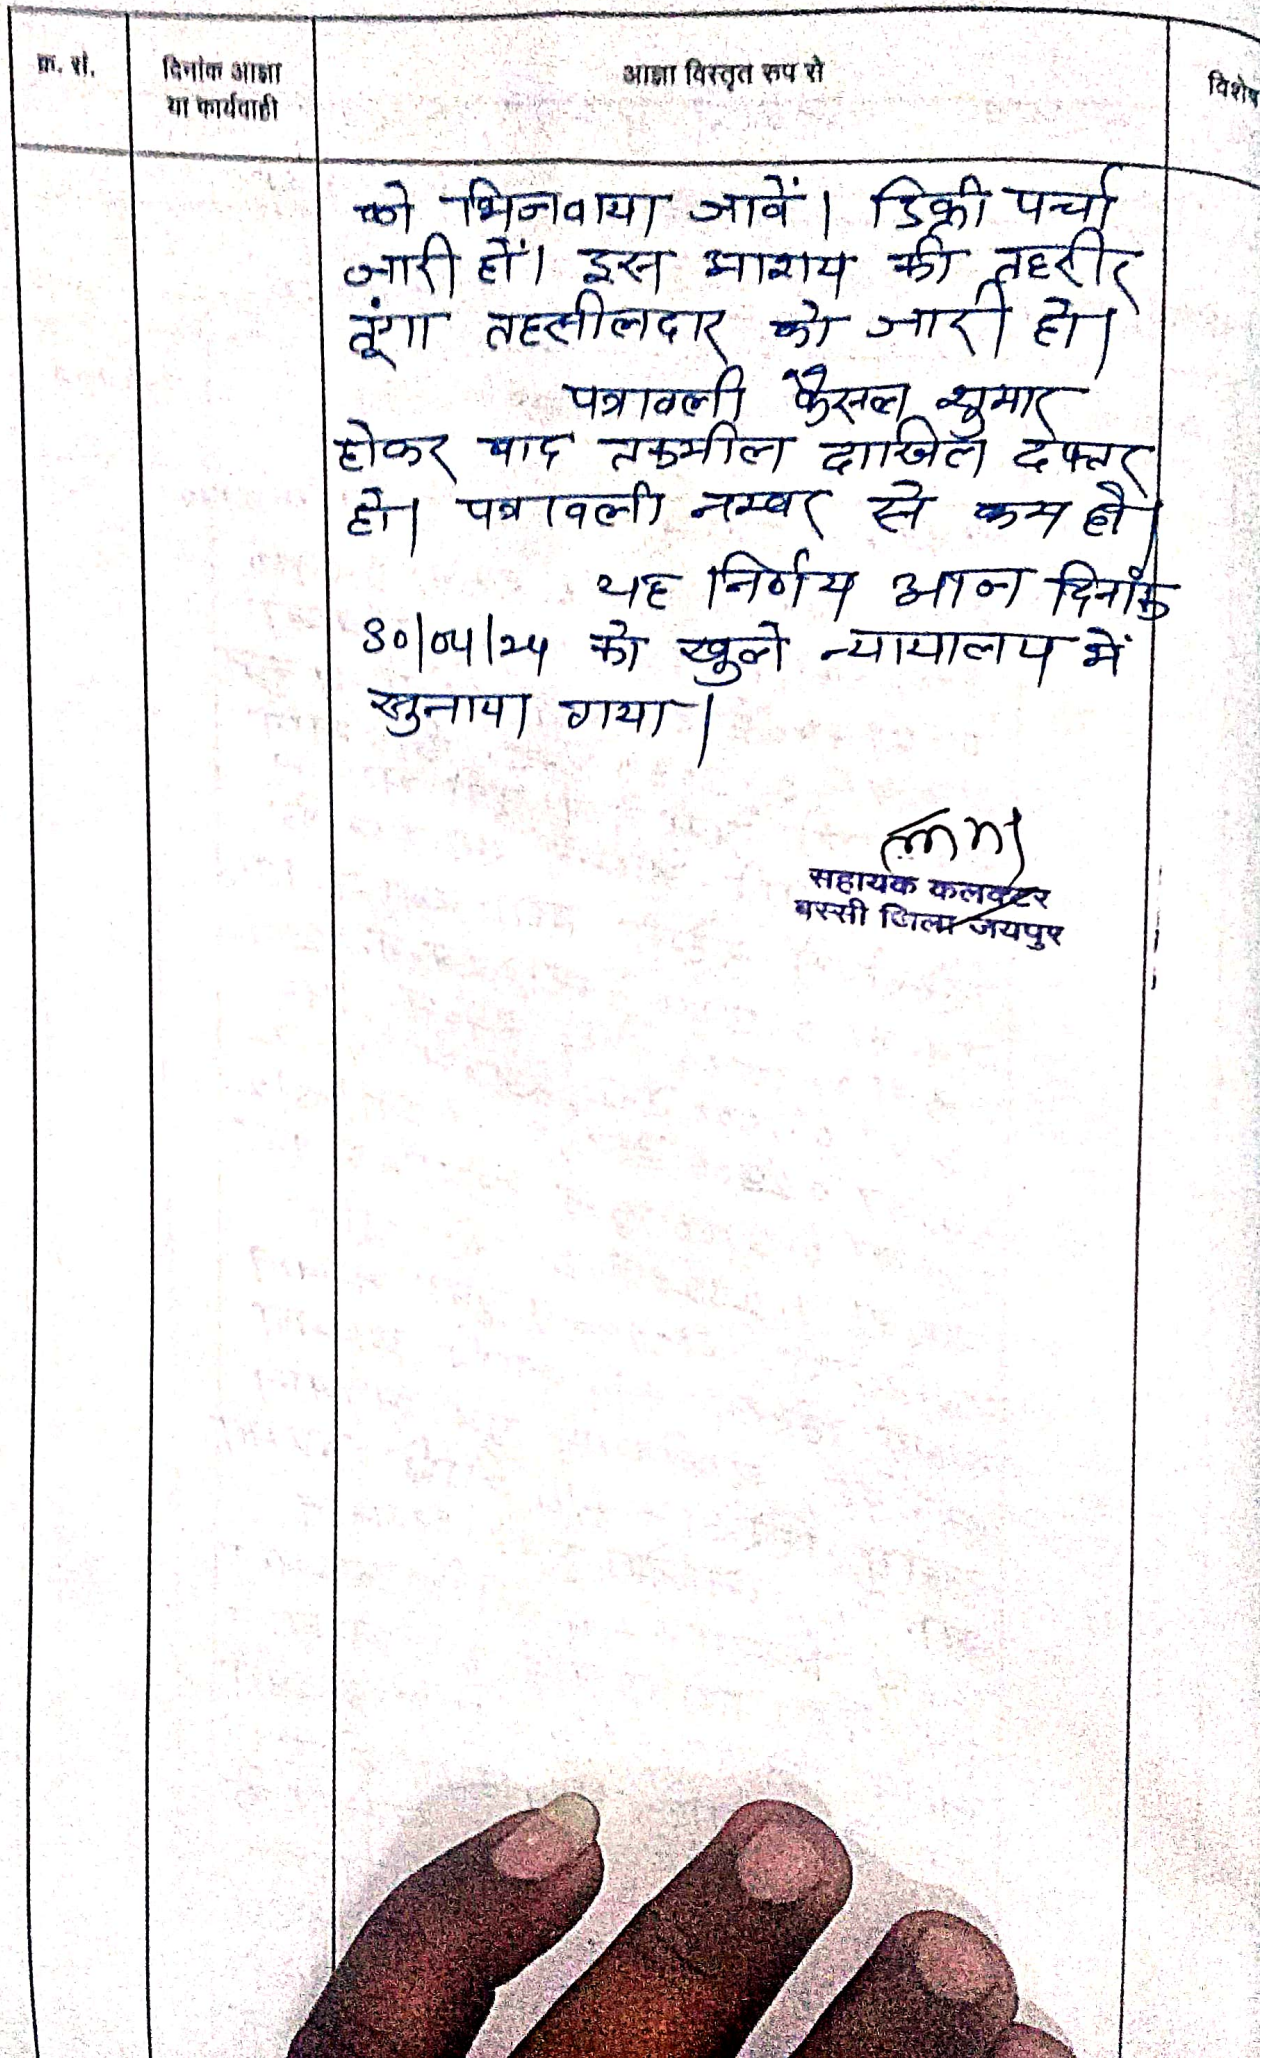 क्र. सं.
दिनांक आज्ञा
या कार्यवाही
आज्ञा विस्तृत रूप से
विशेष
को भिजवाया जावें। डिक्री पर्चा
जारी हों। इस आशय की तहरीर
तूंगा तहसीलदार को जारी हो।
पत्रावली फैसल शुमार
होकर बाद तकमील दाखिल दफ्तर
हो। पत्रावली नम्बर से कम हो।
यह निर्णय आज दिनांक
30/04/24 को खुले न्यायालय में
सुनाया गया।
सहायक कलक्टर
बस्सी जिला जयपुर